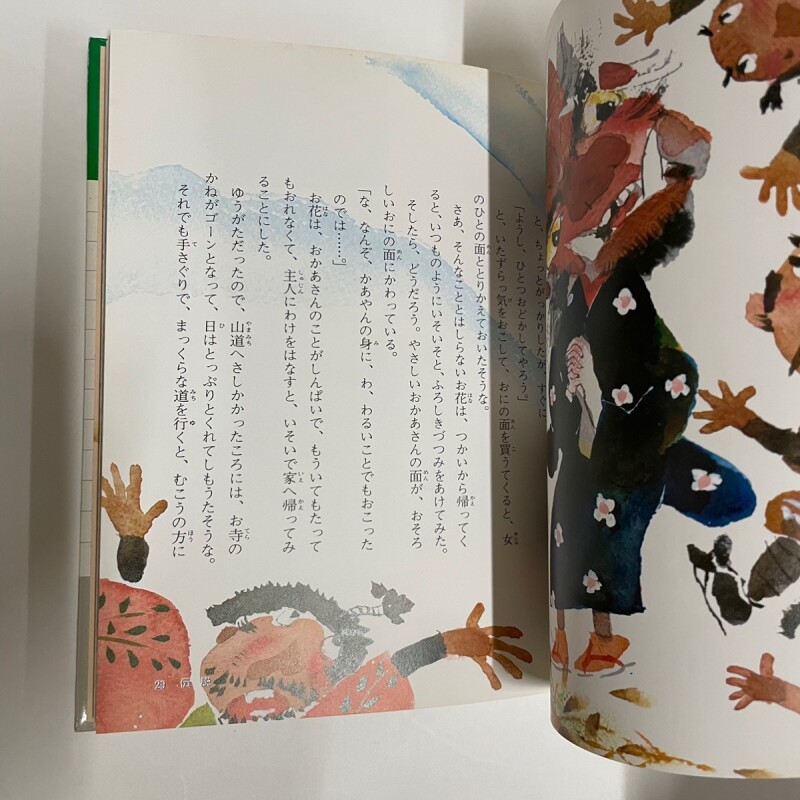 と、ちょっとがっかりしたが、すぐに
「ようし、ひとつおどかしてやろう。」
と、いたずらっ気をおこして、おにの面を買うてくると、女
のひとの面ととりかえておいたそうな。
さあ、そんなこととはしらないお花は、つかいから帰ってく
ると、いつものようにいそいそと、ふろしきづつみをあけてみた。
そしたら、どうだろう。やさしいおかあさんの面が、おそろ
しいおにの面にかわっている。
「な、なんぞ、かあやんの身に、わ、わるいことでもおこった
のでは……。」
お花は、おかあさんのことがしんぱいで、もういてもたって
もおれなくて、主人にわけをはなすと、いそいで家へ帰ってみ
ることにした。
ゆうがただったので、山道へさしかかったころには、お寺の
かねがゴーンとなって、日はとっぷりとくれてしもうたそうな。
それでも手さぐりで、まっくらな道を行くと、むこうの方に
29